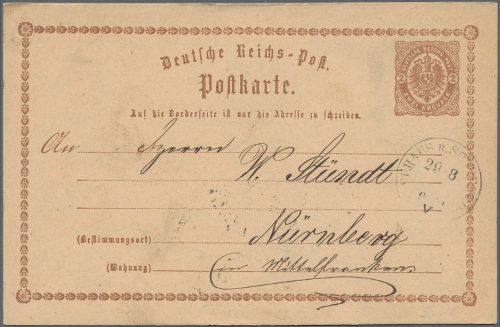 Deutsche Reichs-Post.
Postkarte.
Auf die Vorderseite ist nur die Adresse zu schreiben.
2 2
An Herrn
W. Stündt
29 8
Nürnberg
(Bestimmungsort)
(Wohnung) in Mittelfranken